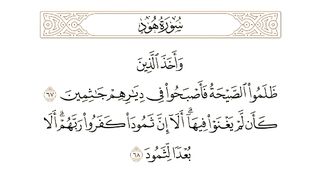 سُورَةُ هُودٍ
وَأَخَذَ ٱلَّذِينَ
ظَلَمُوا۟ ٱلصَّيْحَةُ فَأَصْبَحُوا۟ فِى دِيَٰرِهِمْ جَٰثِمِينَ ٦٧
كَأَن لَّمْ يَغْنَوْا۟ فِيهَآ ۗ أَلَآ إِنَّ ثَمُودَا۟ كَفَرُوا۟ رَبَّهُمْ ۗ أَلَا
بُعْدًا لِّثَمُودَ ٦٨